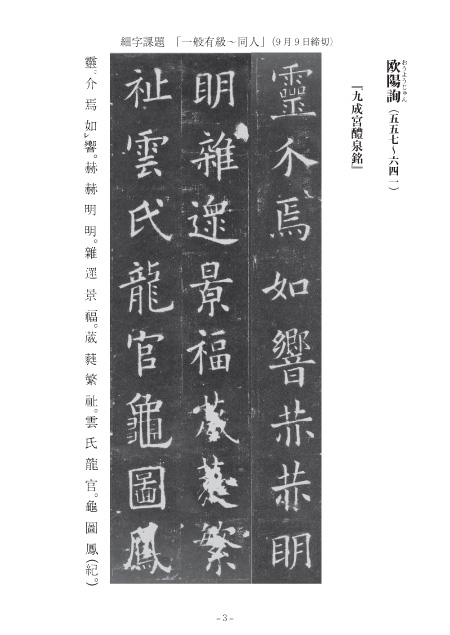 細字課題　「一般有級～同人」（9月9日締切）
欧陽詢（五五七～六四一）
おうようじゅん
『九成宮醴泉銘』
靈介焉如響赫赫明
明雜遝景福葳蕤繁
祉雲氏龍官龜圖鳳
靈介焉如レ響。赫赫明明。雜遝景福。葳蕤繁祉。雲氏龍官。龜圖鳳（紀。）
－3－